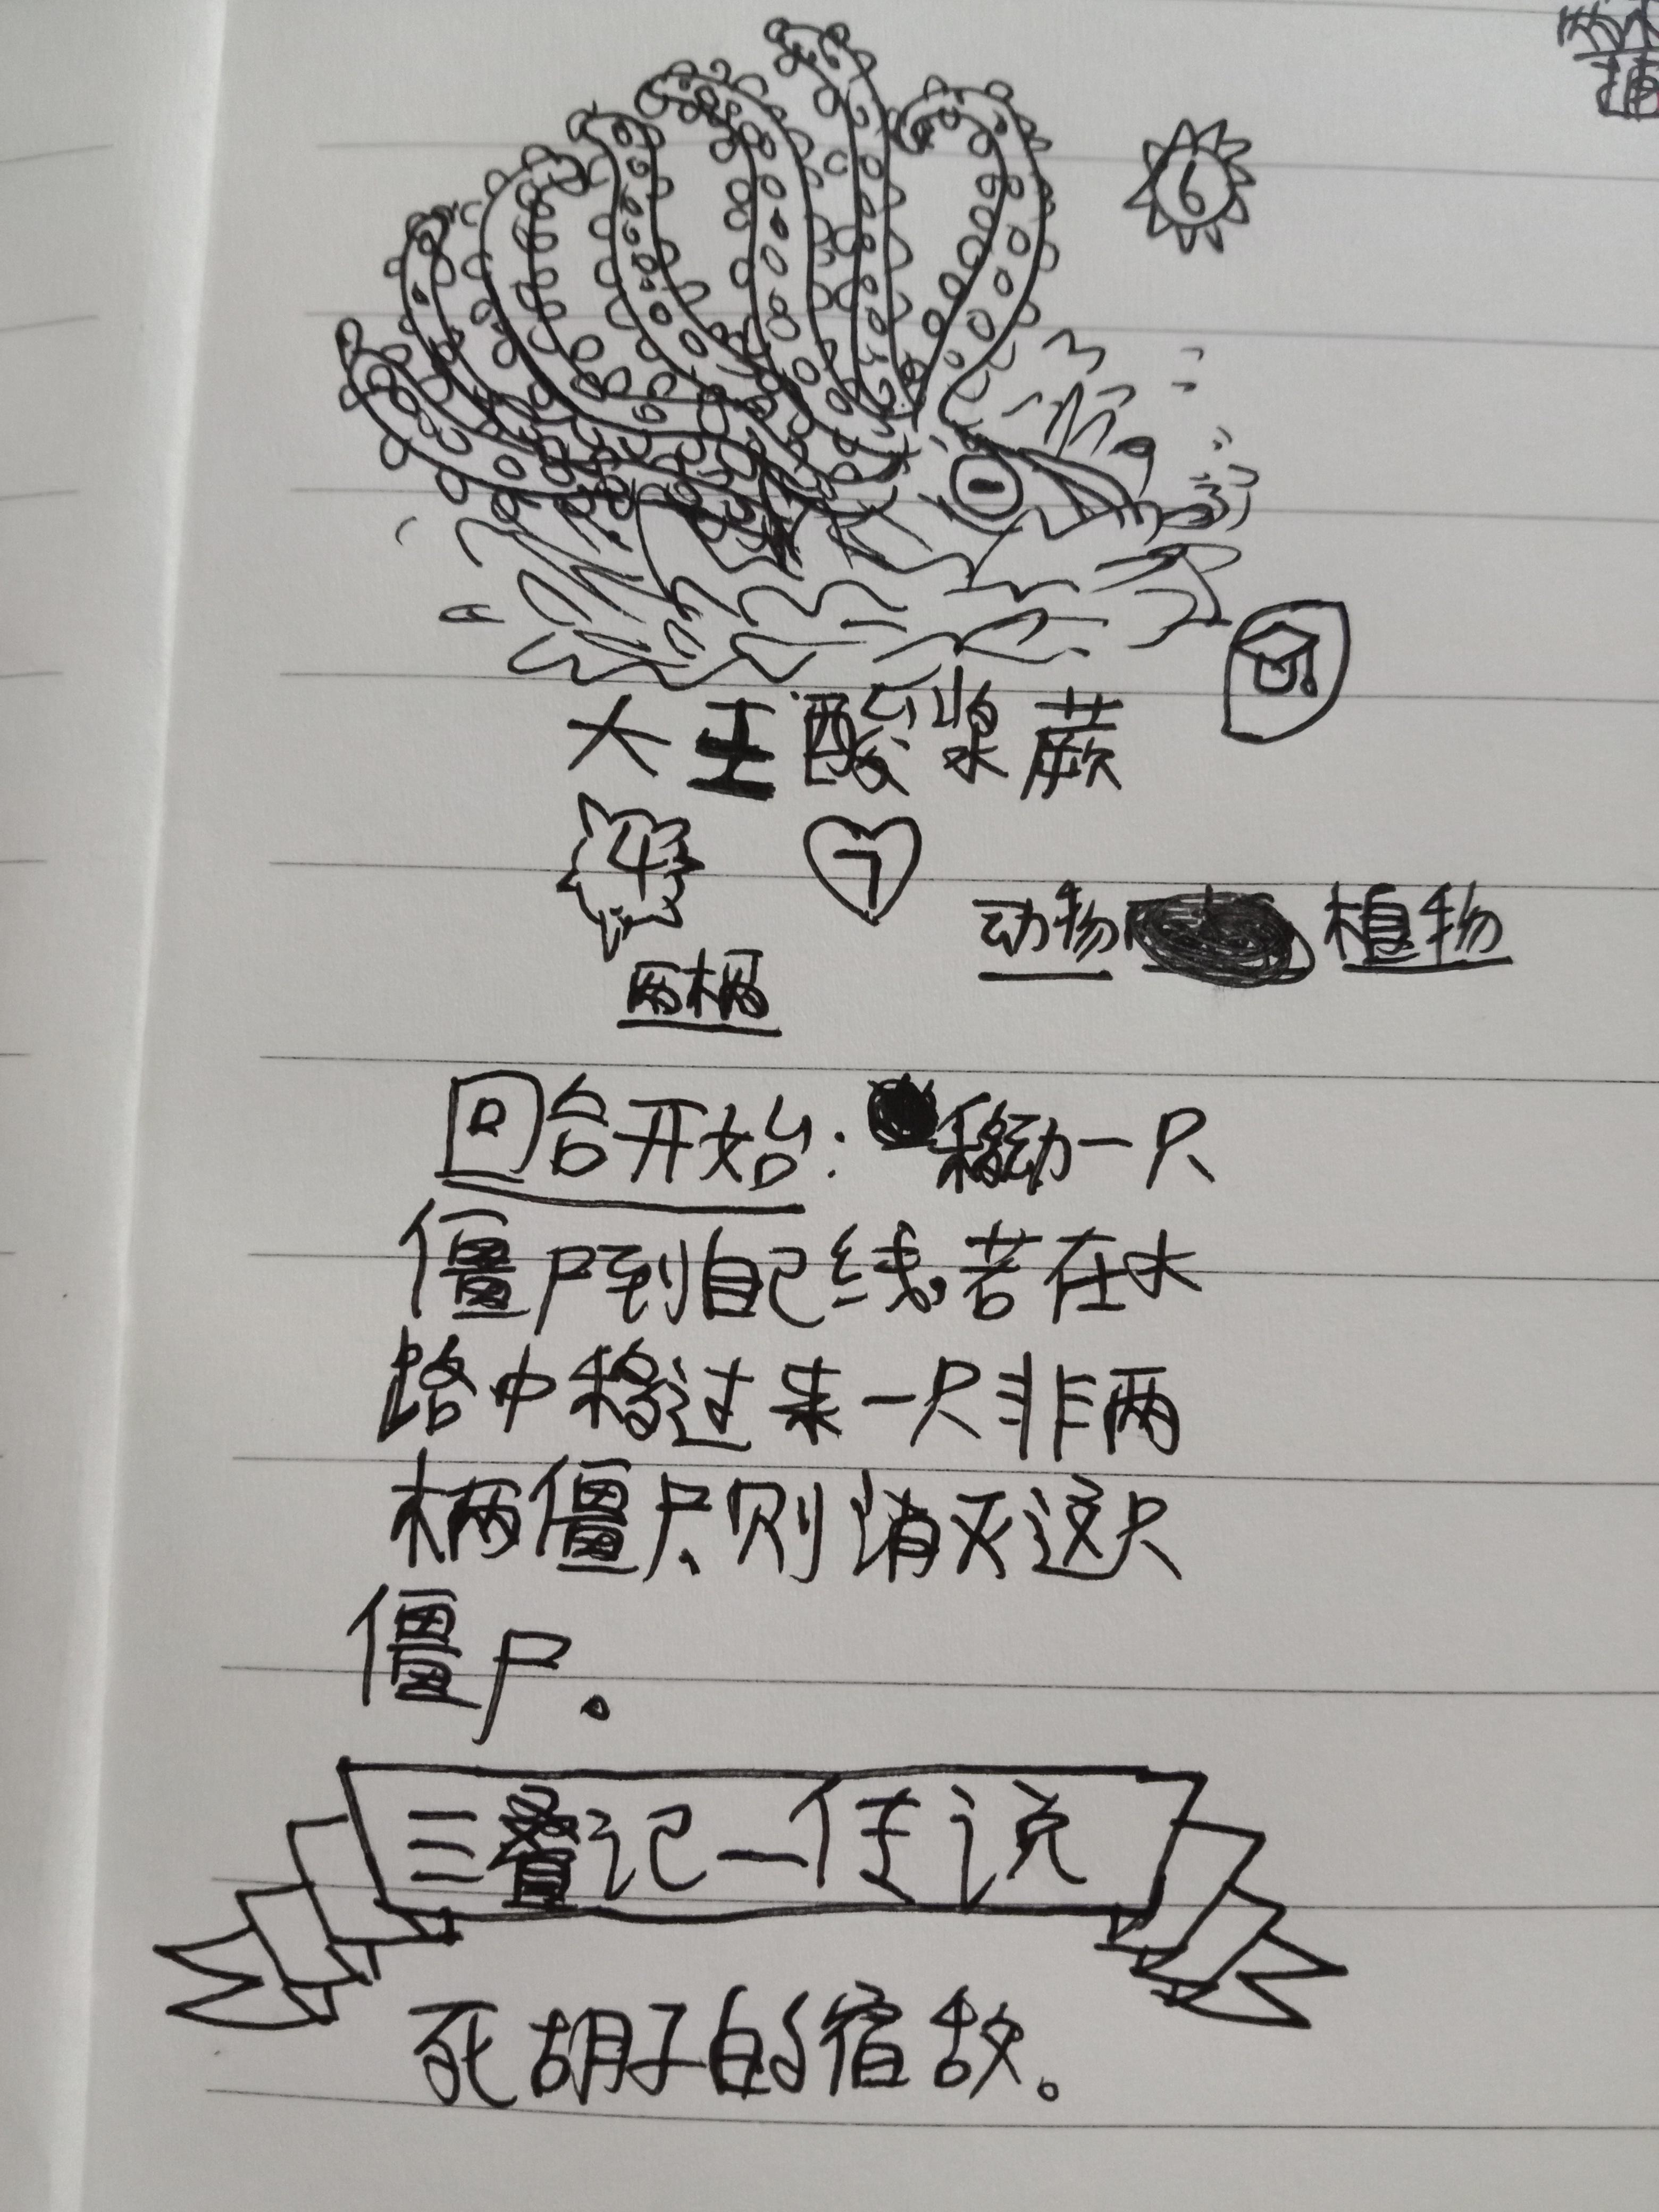 6
大王酸浆蕨
4 7
动物 植物
两栖
回合开始：移动一只
僵尸到自己线,若在水
路中移过来一只非两
栖僵尸,则消灭这只
僵尸.
三叠记—传说
死胡子的宿敌。